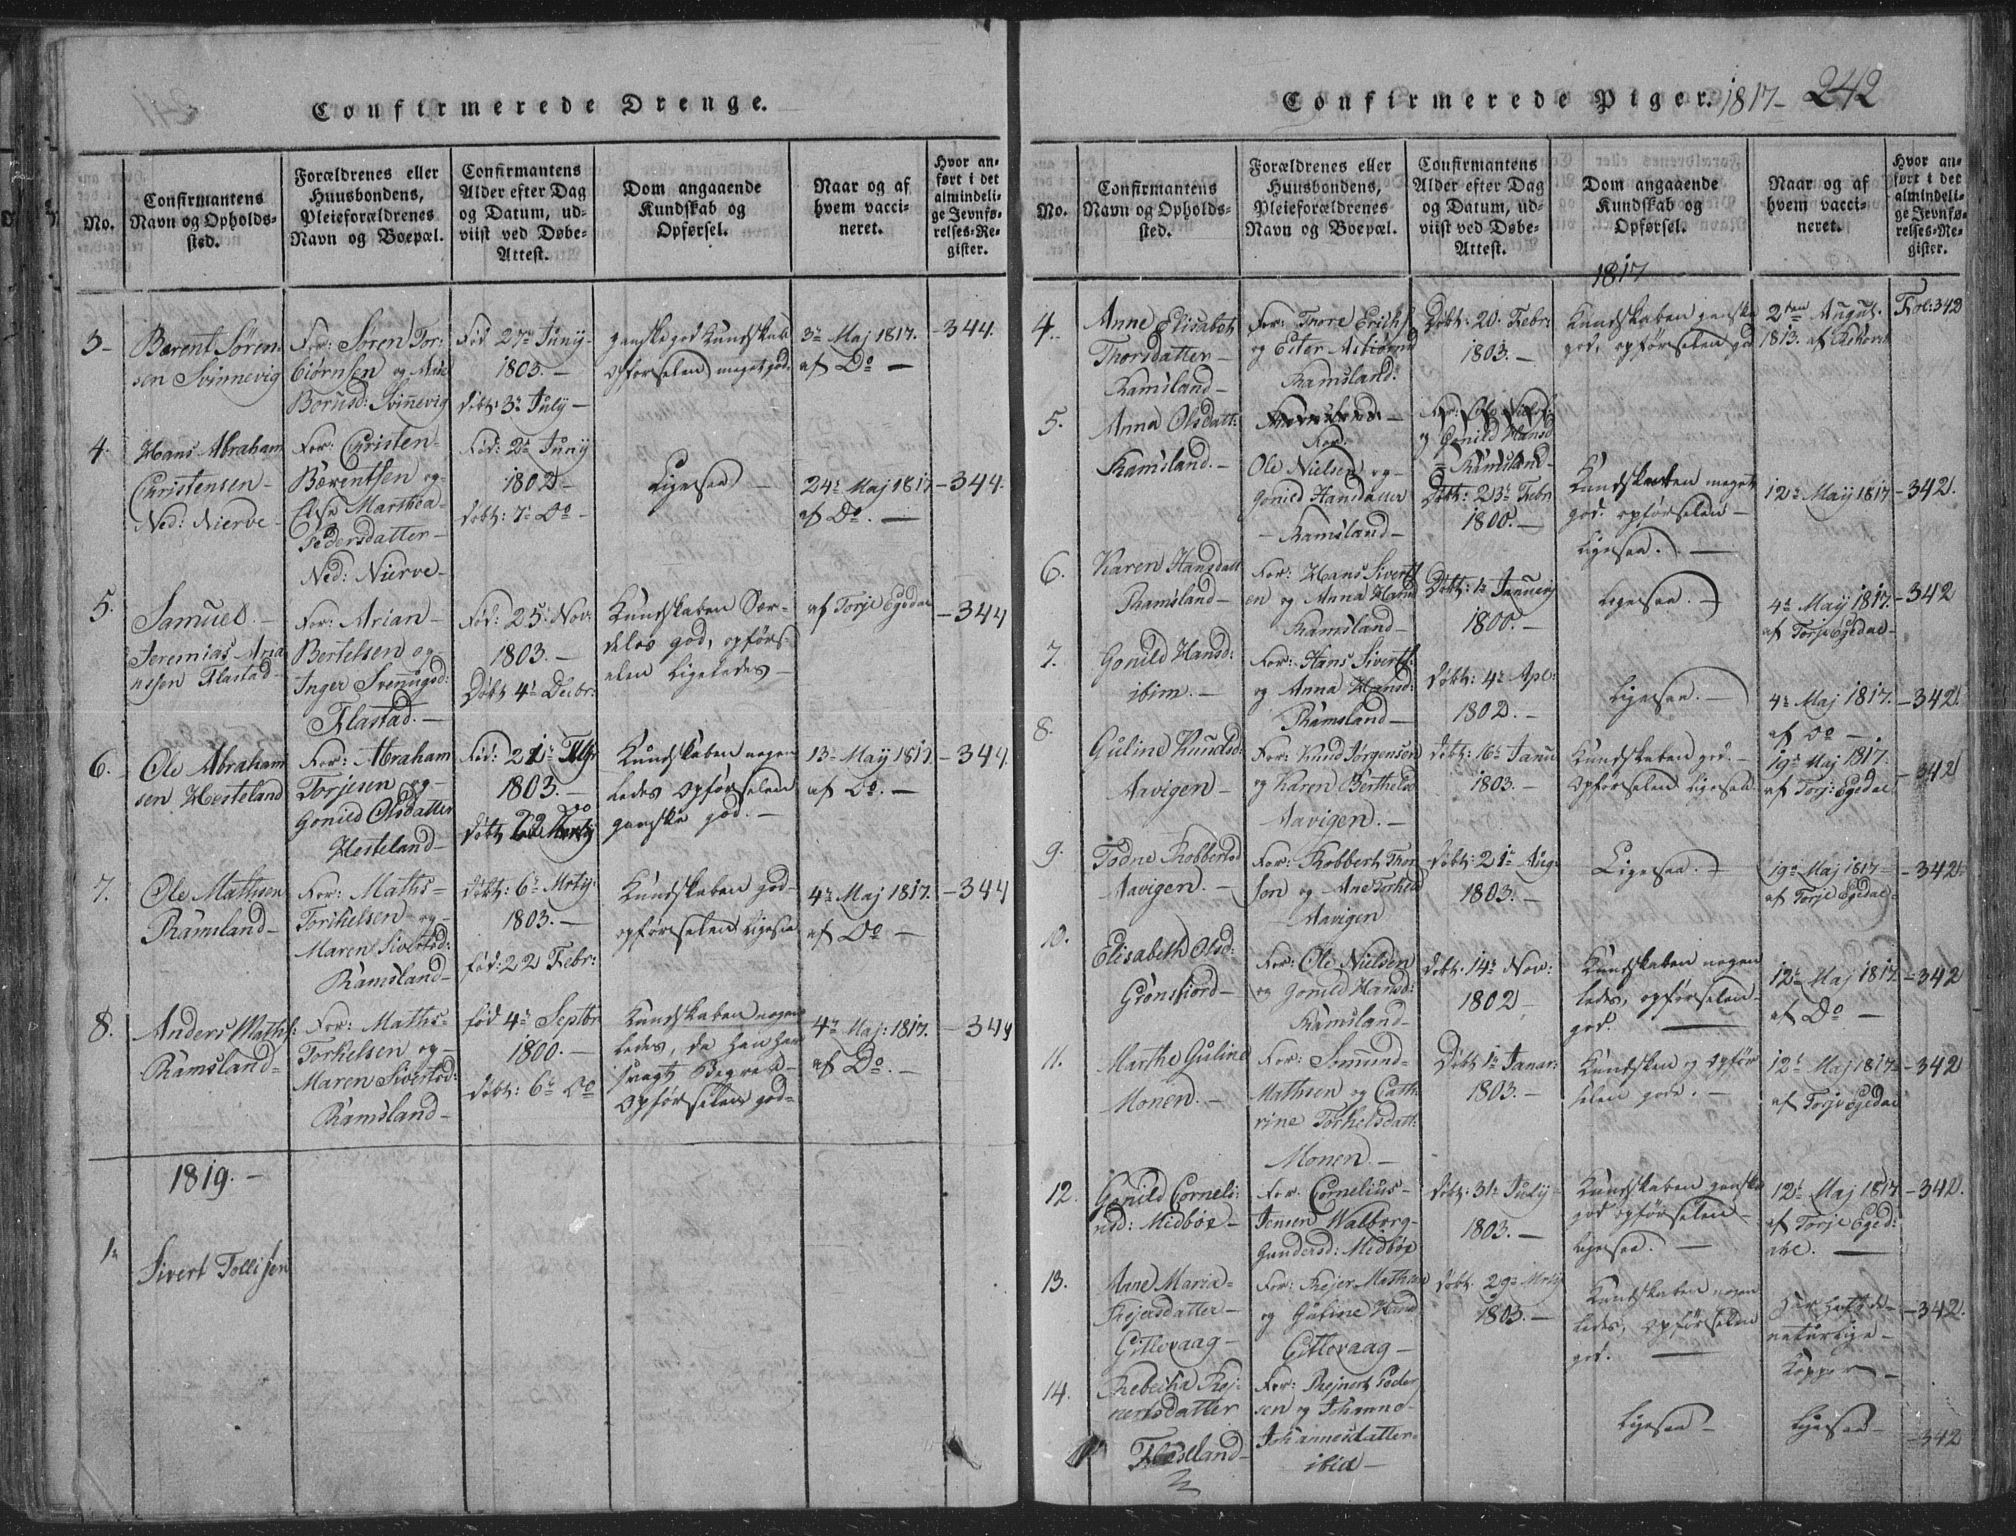 Confirmerede Drenge.
No.
Confirmantens
Navn og Opholds-
sted.
Forældrenes eller
Huusbondens,
Pleieforældrenes
Navn og Boepæl.
Confirmantens
Alder efter Dag
og Datum, ud-
viist ved Døbe-
Attest.
Dom angaaende
Kundskab og
Opførsel.
Naar og af
hvem vacci-
neret.
Hvor an-
ført i det
almindeli-
ge Jevnfø-
relses-Re-
gister.
3-
Bærent Søren-
sen Svinnevig
For: Søren Tor-
biørnsen og Ane
Borusd: Svinnevig
Fød 27de Juny-
1803.-
døbt: 3de July-
ganske god Kundskab
Opførselen meget god.
3de Maj 1817.
af Do -
-344.
4.
Hans Abraham
Christensen-
Ned: Nierve-
For: Christen-
Bærentsen og-
Marthea-
Pedersdatter-
Ned: Nierve-
Fød: 2de Juny
1802-
døbt: 7de Do-
Ligesaa -
24de Maj 1817
af Do. -
-344.
5.
Samuel.-
Jeremias Aria
nssen Flastad-
For: Arian-
Bertelsen og
Inger Svennugsd:
Flastad.-
Fød: 25: Nov:
1803.-
Døbt 4de Decbr:
Kundskaben Sær-
deles god, opførs-
elen Ligeledes-
af Torje Egedal
-344
6.
Ole Abraham
sen Hesteland
For: Abraham
Torjesen og-
Gonild Olsdatter
Hesteland-
Fød: 21de
1803.-
døbt
Kundskaben nogen
ledes Opførselen
ganske god.-
13de May 1817.
af Do. -
-344.
7.
Ole Mathsen
Ramsland-
For: Maths-
Torkelsen og-
Maren Sivertsd:
Ramsland-
døbt: 6de Mrtz:
1803.-
fød: 22 Febr:
Kundskaben god-
opførselen Ligesaa
4de Maj 1817.
af Do -
-344
8.
Anders Maths:
Ramsland-
For: Maths-
Torkelsen og-
Maren Sivertsd:
Ramsland-
fød 4de Septbr
1800.-
døbt: 6de Do
Kundskaben nogen
ledes, da han har
svagt Begreb-
Opførselen god-
4de Maj: 1817.
af Do. -
-344
1819.-
1te
Sivert Tollisen
Confirmerede Piger. 1817- 242
No.
Confirmantens
Navn og Opholds-
sted.
Forældrenes eller
Huusbondens,
Pleieforældrenes
Navn og Boepæl.
Confirmantens
Alder efter Dag
og Datum, ud-
viist ved Døbe-
Attest.
Dom angaaende
Kundskab og
Opførsel.
Naar og af
hvem vacci-
neret.
Hvor an-
ført i det
almindeli-
ge Jevnfø-
relses-Re-
gister.
1817
4.
Anne Elisabet
Thorsdatter-
Ramsland-
For: Thore Erichs
og Ester Asbiørnsd
Ramsland:
Døbt: 20. Febr:
1803.-
Kundskaben ganske
god, opførselen god
2den August
1813. af
Fol: 342
5.
Anna Olsdatt:
Ramsland.-
For:
Ole Nielsen og-
Gonild Hansdatter
-Ramsland-
For: Ole Niels:
og Gonild Hansd
-Ramsland-
Døbt: 23de Febr
1800.-
Kundskaben meget
god. opførselen-
Ligesaa. -
12te May 1817
-342.
6.
Karen Hansdatt
Ramsland-
For: Hans Sivert
en og Anna Hansd
Ramsland-
Døbt: 1te Januarj
1800.-
Ligesaa. -
4de May 1817.
af Torje Egedal-
-342
7.
Gonild Hansd:
ibim.-
For: Hans Siverts:
og Anna Hansd:
Ramsland-
døbt: 4de Apl:
1802.-
Ligesaa.-
4de Maj 1817.
af Do -
-342.
8.
Guline Knudsd:
Aavigen-
For: Knud Jørgensen
og Karen Berthelsd
Aavigen.-
døbt: 16de Janu
1803.-
Kundskaben god.-
Opførselen Ligesaa.
19de Maj 1817.
af Torj: Egedal
-342
9.
Todne Robbertsd
Aavigen.-
For: Robbert Thor
sen og Ane Torkelsd
Aavigen
døbt: 21de Aug:
1803.-
Ligesaa.-
19de Maj 1817-
af Torje Egedal-
-342.
10.
Elisabeth Olsd:
Grønsfiord-
For: Ole Nielsen
og Gonild Hansd:
Ramsland-
døbt: 14de Nov:
1802
Kundskaben nogen
ledes, opførselen-
god. -
12te Maj 1817.
af Do -
-342
11.
Marthe Guline
Monen.-
For: Sømund-
Mathsen og Cath
rine Torkelsdatt:
Monen.-
Døbt 1te Januar:
1803.-
Kundsken og Opfør
selen gode.-
12te Maj 1817-
af Torje Egedal
-342
12.
Gonild Corneli:
usd: Midbøe-
For: Cornelius-
Jensen Walborg-
Gundersd: Midbøe
døbt: 31te July-
1803.-
Kundskaben ganske
god opførselen-
Ligesaa. -
12te Maj 1817
af Torje Eged:
ahl. -
-342.
13.
Anne Maria-
Rejersdatter-
Gittevaag-
For: Rejer Mathsen
og Guline Hansd
Gittevaag-
døbt. 29de Mrtz
1803.-
Kundskaben nogen
ledes, Opførselen
god. -
Har havt de-
naturlige-
Kopper-
-342.
14.
Rebecha Rej-
nertsdatter
For: Rejnert Peder
sen og Johanne-
Johannesdatter-
ibid-
Ligesaa-
Ligesaa-
-342